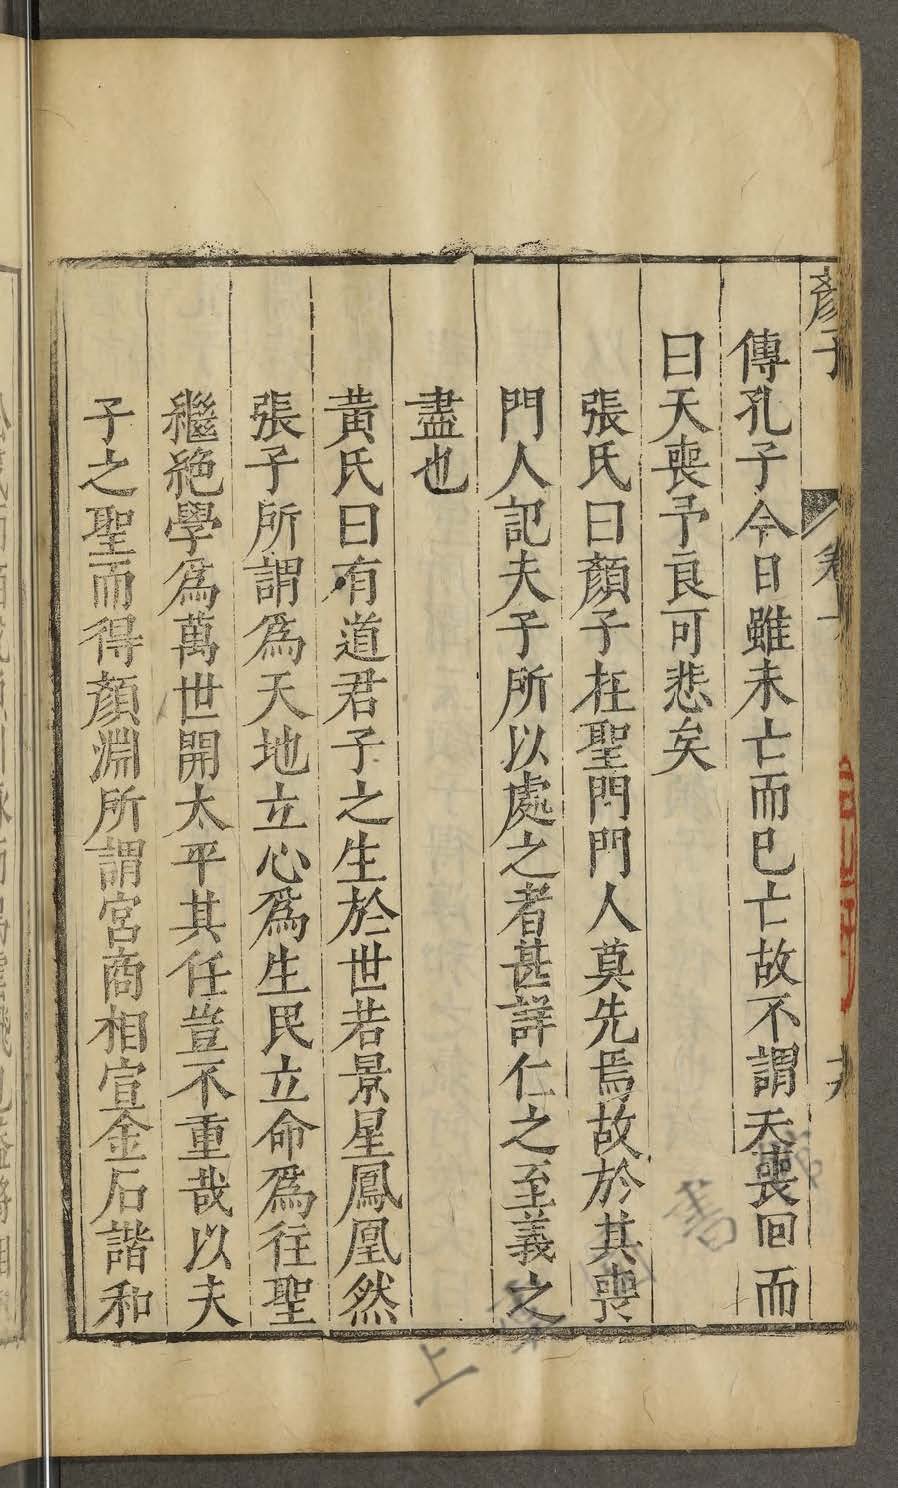 顏子
卷上
傳孔子今日雖未亡而已亡故不謂天喪回而
曰天喪予良可悲矣
張氏曰顏子在聖門門人莫先焉故於其喪
門人記夫子所以處之者甚詳仁之至義之
盡也
黃氏曰有道君子之生於世若景星鳳凰然
張子所謂爲天地立心爲生民立命爲往聖
繼絕學爲萬世開太平其任豈不重哉以夫
子之聖而得顏淵所謂宮商相宣金石諧和